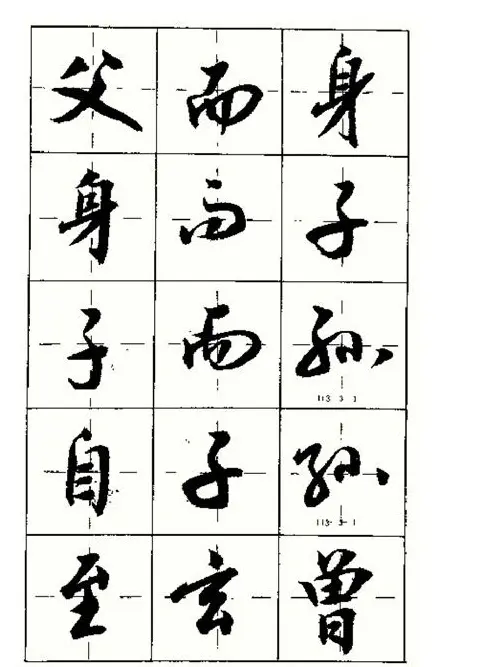 父而身
身而子
子而孙
自子孙
至玄曾